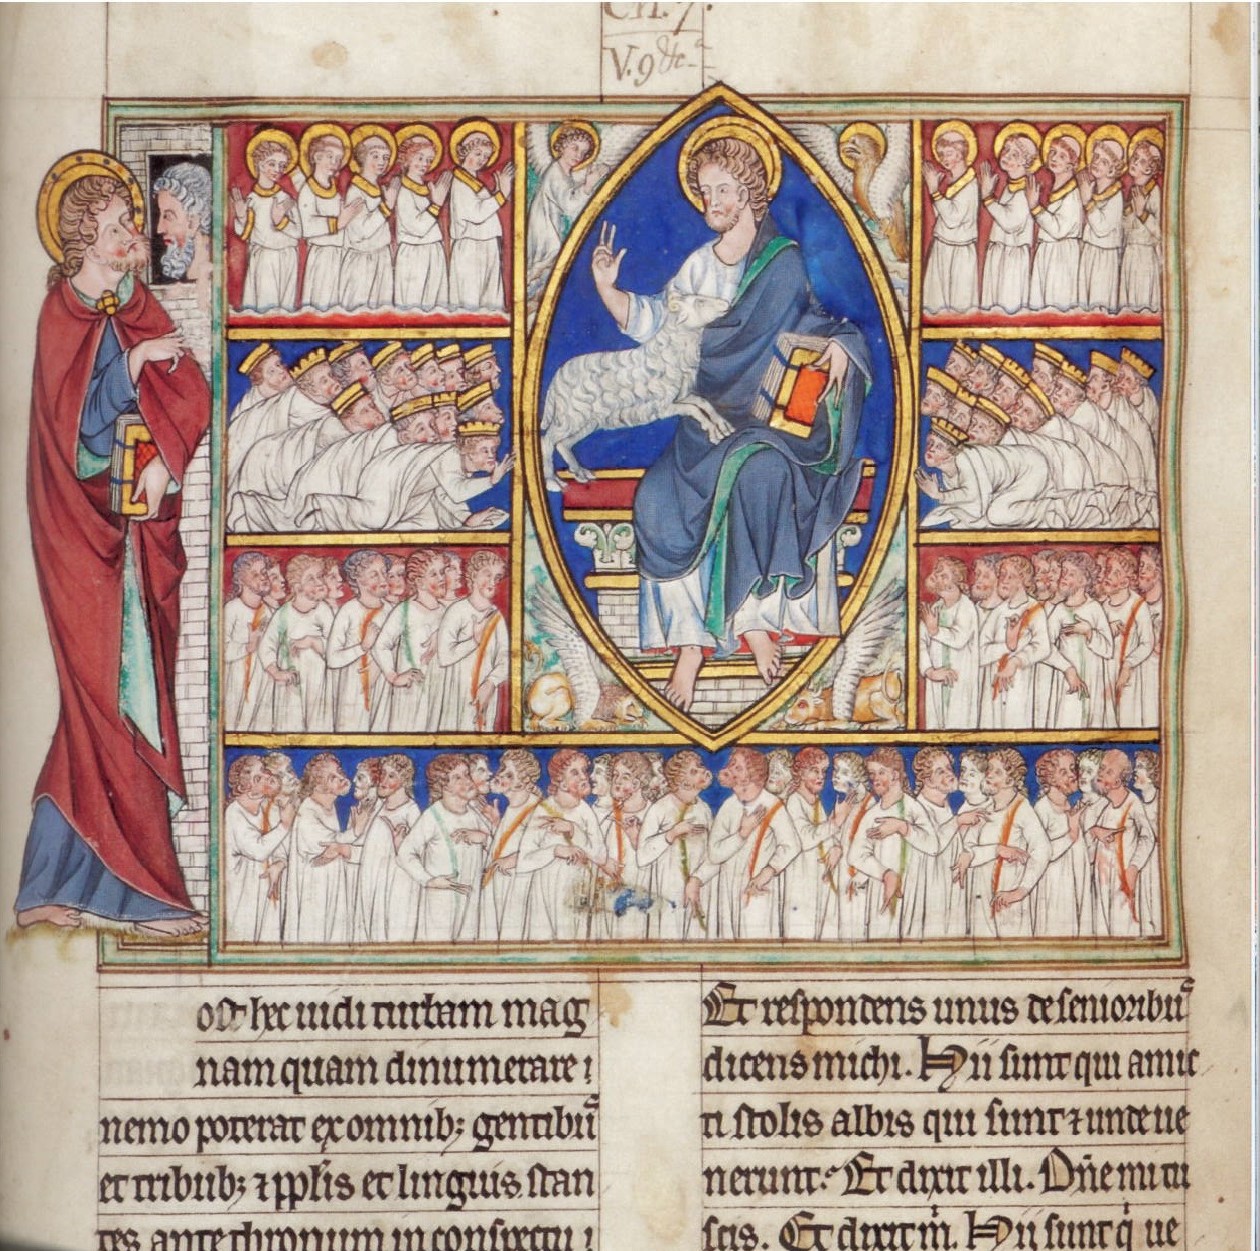 Ch. 7.
V. 9 &c.
ost hec uidi turbam mag
nam quam dinumerare
nemo poterat ex omnib; gentibū
et tribub; ⁊ pplis et linguis stan
tes ante thronum in conspectu
Et respondens unus de senioribū
dicens michi. Hii sunt qui amic
ti stolis albis qui sunt ⁊ unde ue
nerunt. Et dixit illi. Dñe mi tu
scis. Et dixit m̄. Hii sunt q̄ ue